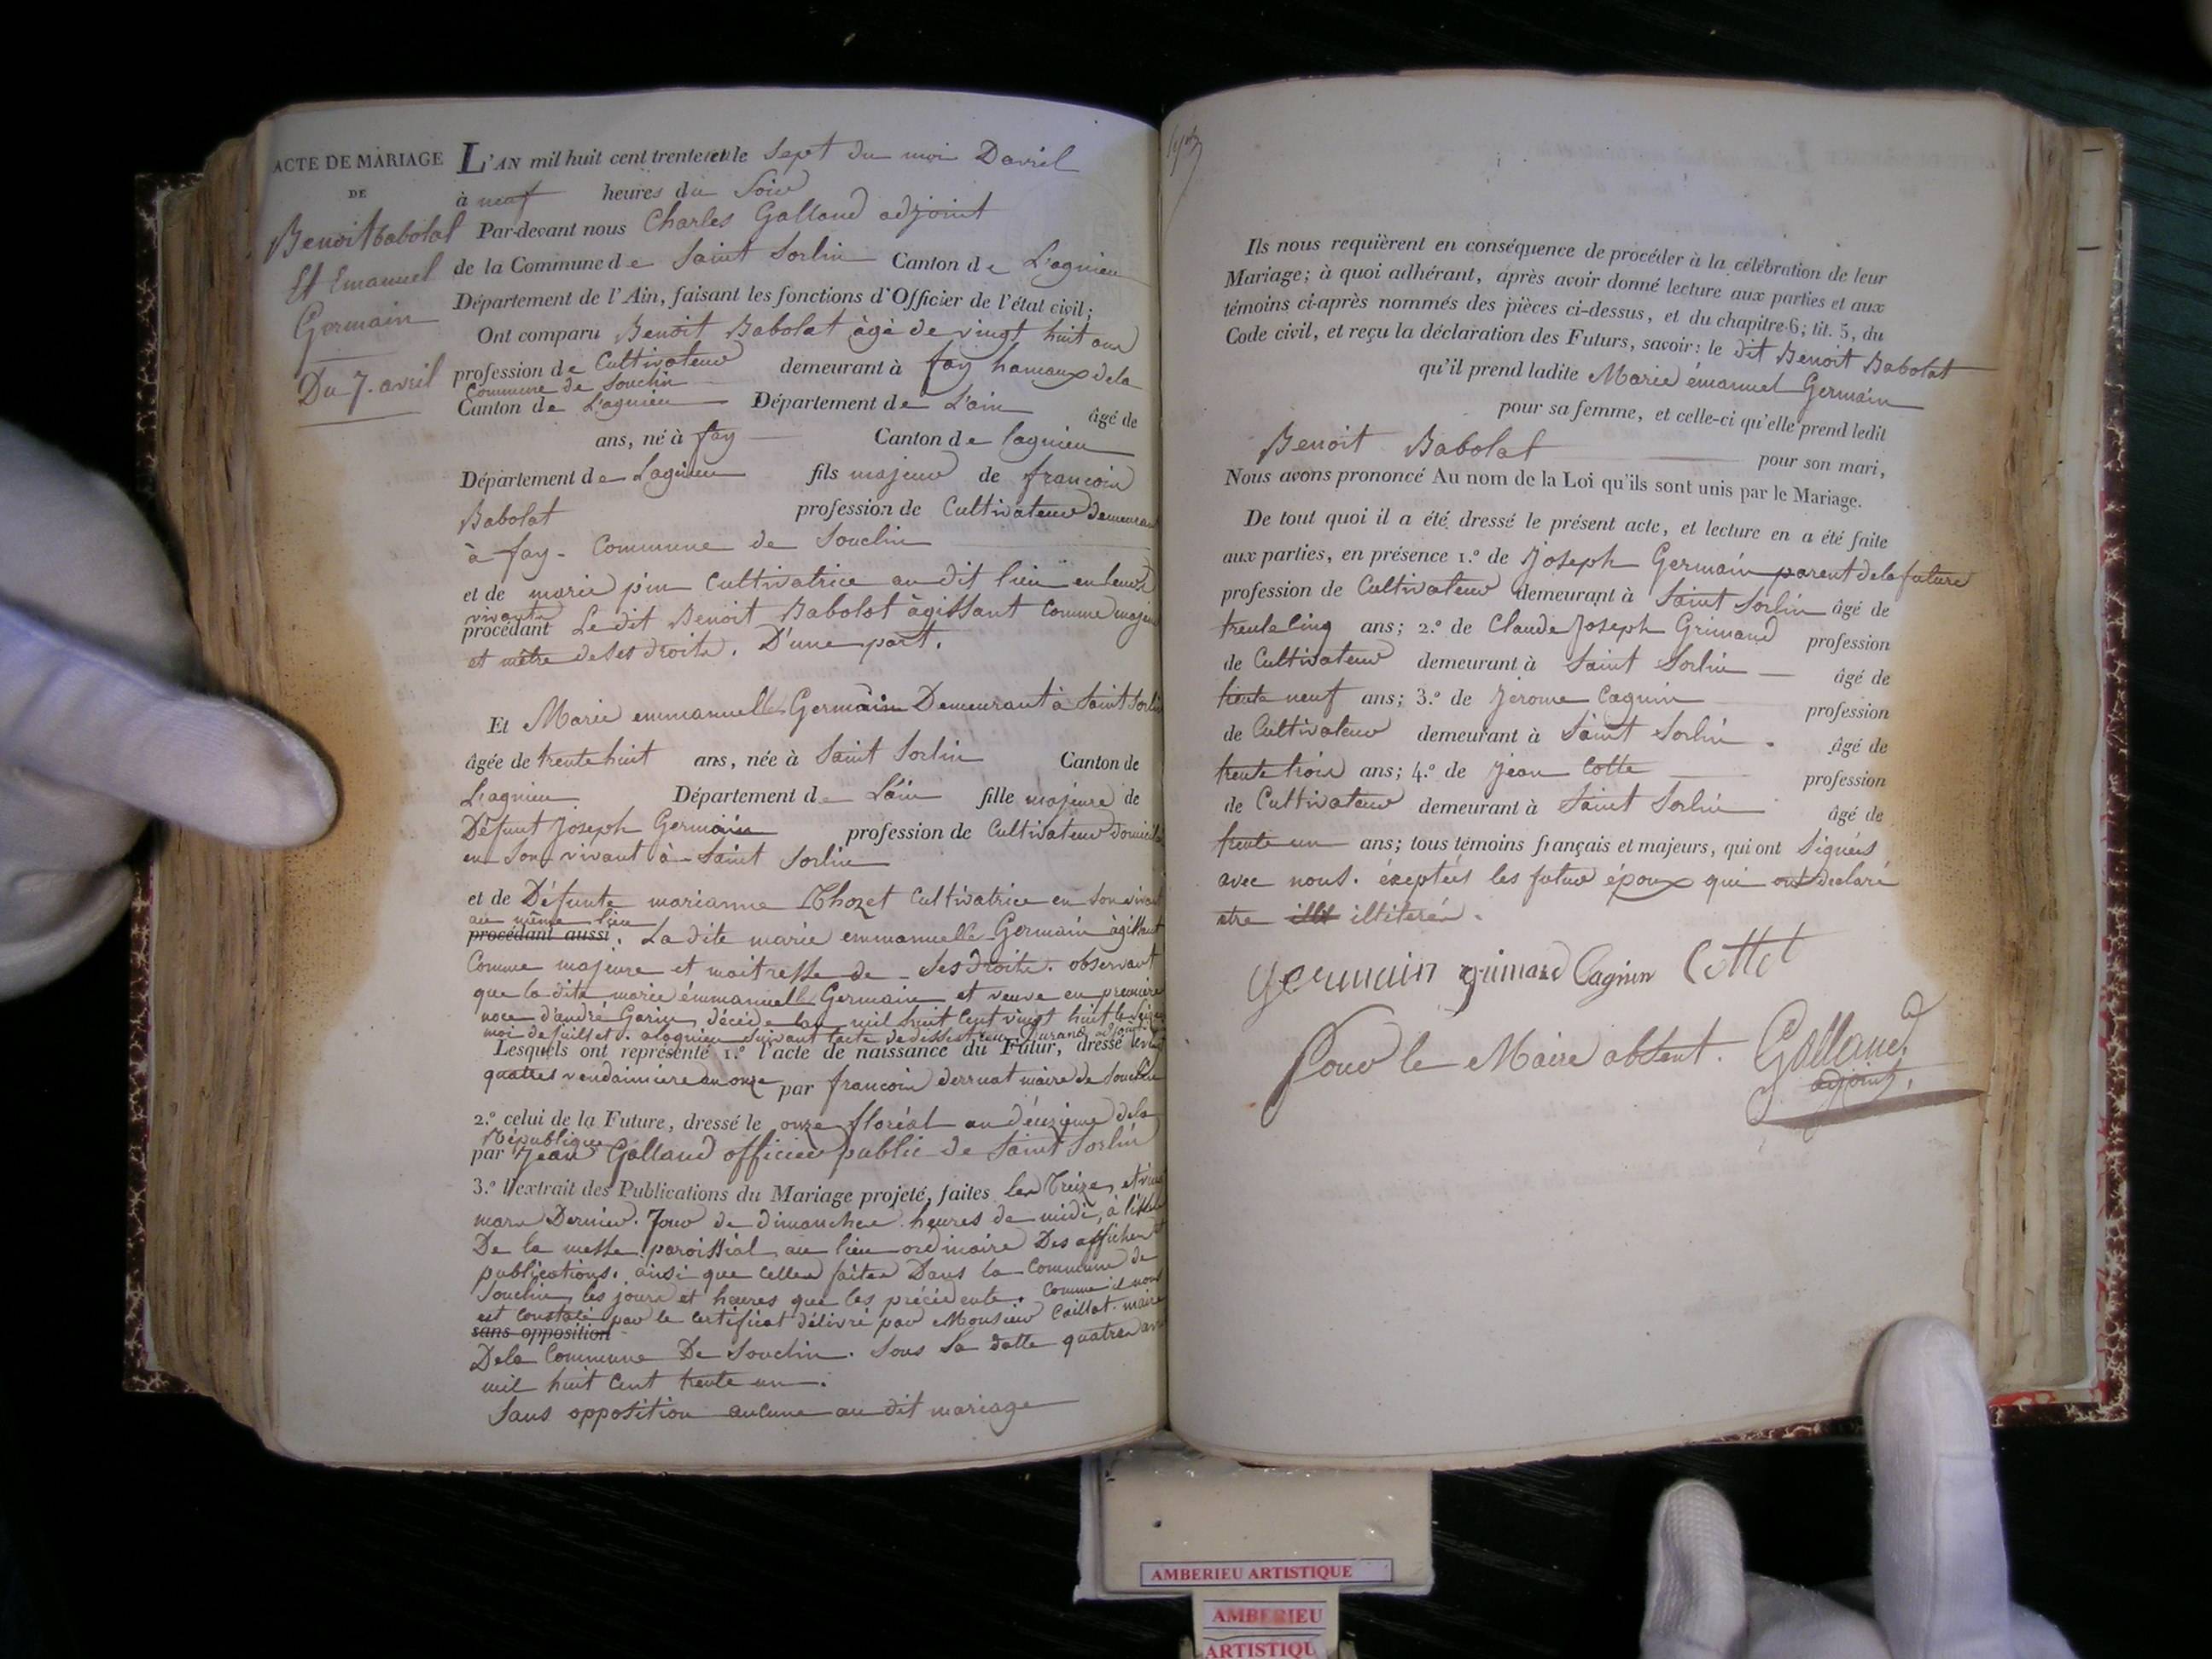 ACTE DE MARIAGE
DE
Benoit Babolat
Et Emanuel
Germain
Du 7. avril
L'AN mil huit cent trente et un le Sept du moi Davril
à neuf heures du Soir
Par-devant nous Charles Galland adjoint
de la Commune de Saint Sorlin Canton de Lagnieu
Département de l'Ain, faisant les fonctions d'Officier de l'état civil;
Ont comparu Benoit Babolat âgé de vingt huit ans
profession de Cultivateur demeurant à fay hamaux dela
Commune de Souclin
Canton de Lagnieu Département de L'ain âgé de
ans, né à fay Canton de lagnieu
Département de Lagnieu fils majeur de francois
Babolat profession de Cultivateur demeurant
à fay. Commune de Souclin
et de marie pin Cultivatrice au dit lieu
vivants
procédant Le dit Benoit Babolat agissant Comme majeur
et mêtre de Ses droits. D'une part.
Et Marie emmanuelle Germain Demeurant à Saint Sorlin
âgée de trente huit ans, née à Saint Sorlin Canton de
Lagnieu Département de L'ain fille majeure de
Défunt Joseph Germain profession de Cultivateur domicilié
en Son vivant à Saint Sorlin
et de Défunte marianne Thozet Cultivatrice en Son vivant
au même lieu
procédant aussi. La dite marie emmanuelle Germain agissant
Comme majeure et maitresse de Ses droits. observant
que la dite marie émmanuelle Germain et veuve en premiere
noce d'andré Garin décédé lan mil huit Cent vingt huit le
moi de juillet. a lagnieu suivant lacte
Lesquels ont représenté 1.º l'acte de naissance du Futur, dressé le vingt
quatres vendaimiere an onze par francois derruat maire de Souclin
2.º celui de la Future, dressé le onze floréal an deuxieme dela
République
par Jean Galland officier public de Saint Sorlin
3.º l'extrait des Publications du Mariage projeté, faites les Treize et vingt
mars Dernier. Jour de dimanche heures de midi, à l'issue
De la messe paroissial au lieu ordinaire Des affiches et
publications. ainsi que celles faites Dans la Commune de
Souclin les jours et heures que les précédents. Comme il nous
est Constaté par le Certificat délivré par Monsieur Caillat maire
sans opposition
Dela Commune De Souclin. Sous Sa datte quatre avril
mil huit Cent trente un.
Sans opposition aucune au dit mariage
Ils nous requièrent en conséquence de procéder à la célébration de leur
Mariage; à quoi adhérant, après avoir donné lecture aux parties et aux
témoins ci-après nommés des pièces ci-dessus, et du chapitre 6; tit. 5, du
Code civil, et reçu la déclaration des Futurs, savoir: le dit Benoit Babolat
qu'il prend ladite Marie émanuel Germain
pour sa femme, et celle-ci qu'elle prend ledit
Benoit Babolat pour son mari,
Nous avons prononcé Au nom de la Loi qu'ils sont unis par le Mariage.
De tout quoi il a été dressé le présent acte, et lecture en a été faite
aux parties, en présence 1.º de Joseph Germain parent dela future
profession de Cultivateur demeurant à Saint Sorlin âgé de
trente cinq ans; 2.º de Claude Joseph Grimand profession
de Cultivateur demeurant à Saint Sorlin âgé de
trente neuf ans; 3.º de Jerome Cagnin profession
de Cultivateur demeurant à Saint Sorlin. âgé de
trente trois ans; 4.º de Jean Cotte profession
de Cultivateur demeurant à Saint Sorlin âgé de
trente un ans; tous témoins français et majeurs, qui ont Signés
avec nous. éxeptéés les futur époux qui ont declaré
etre illit illiterés.
Germain grimand Cagnin Cottet
Pour le Maire absent. Galland
adjoint.
AMBERIEU ARTISTIQUE
AMBERIEU
ARTISTIQU